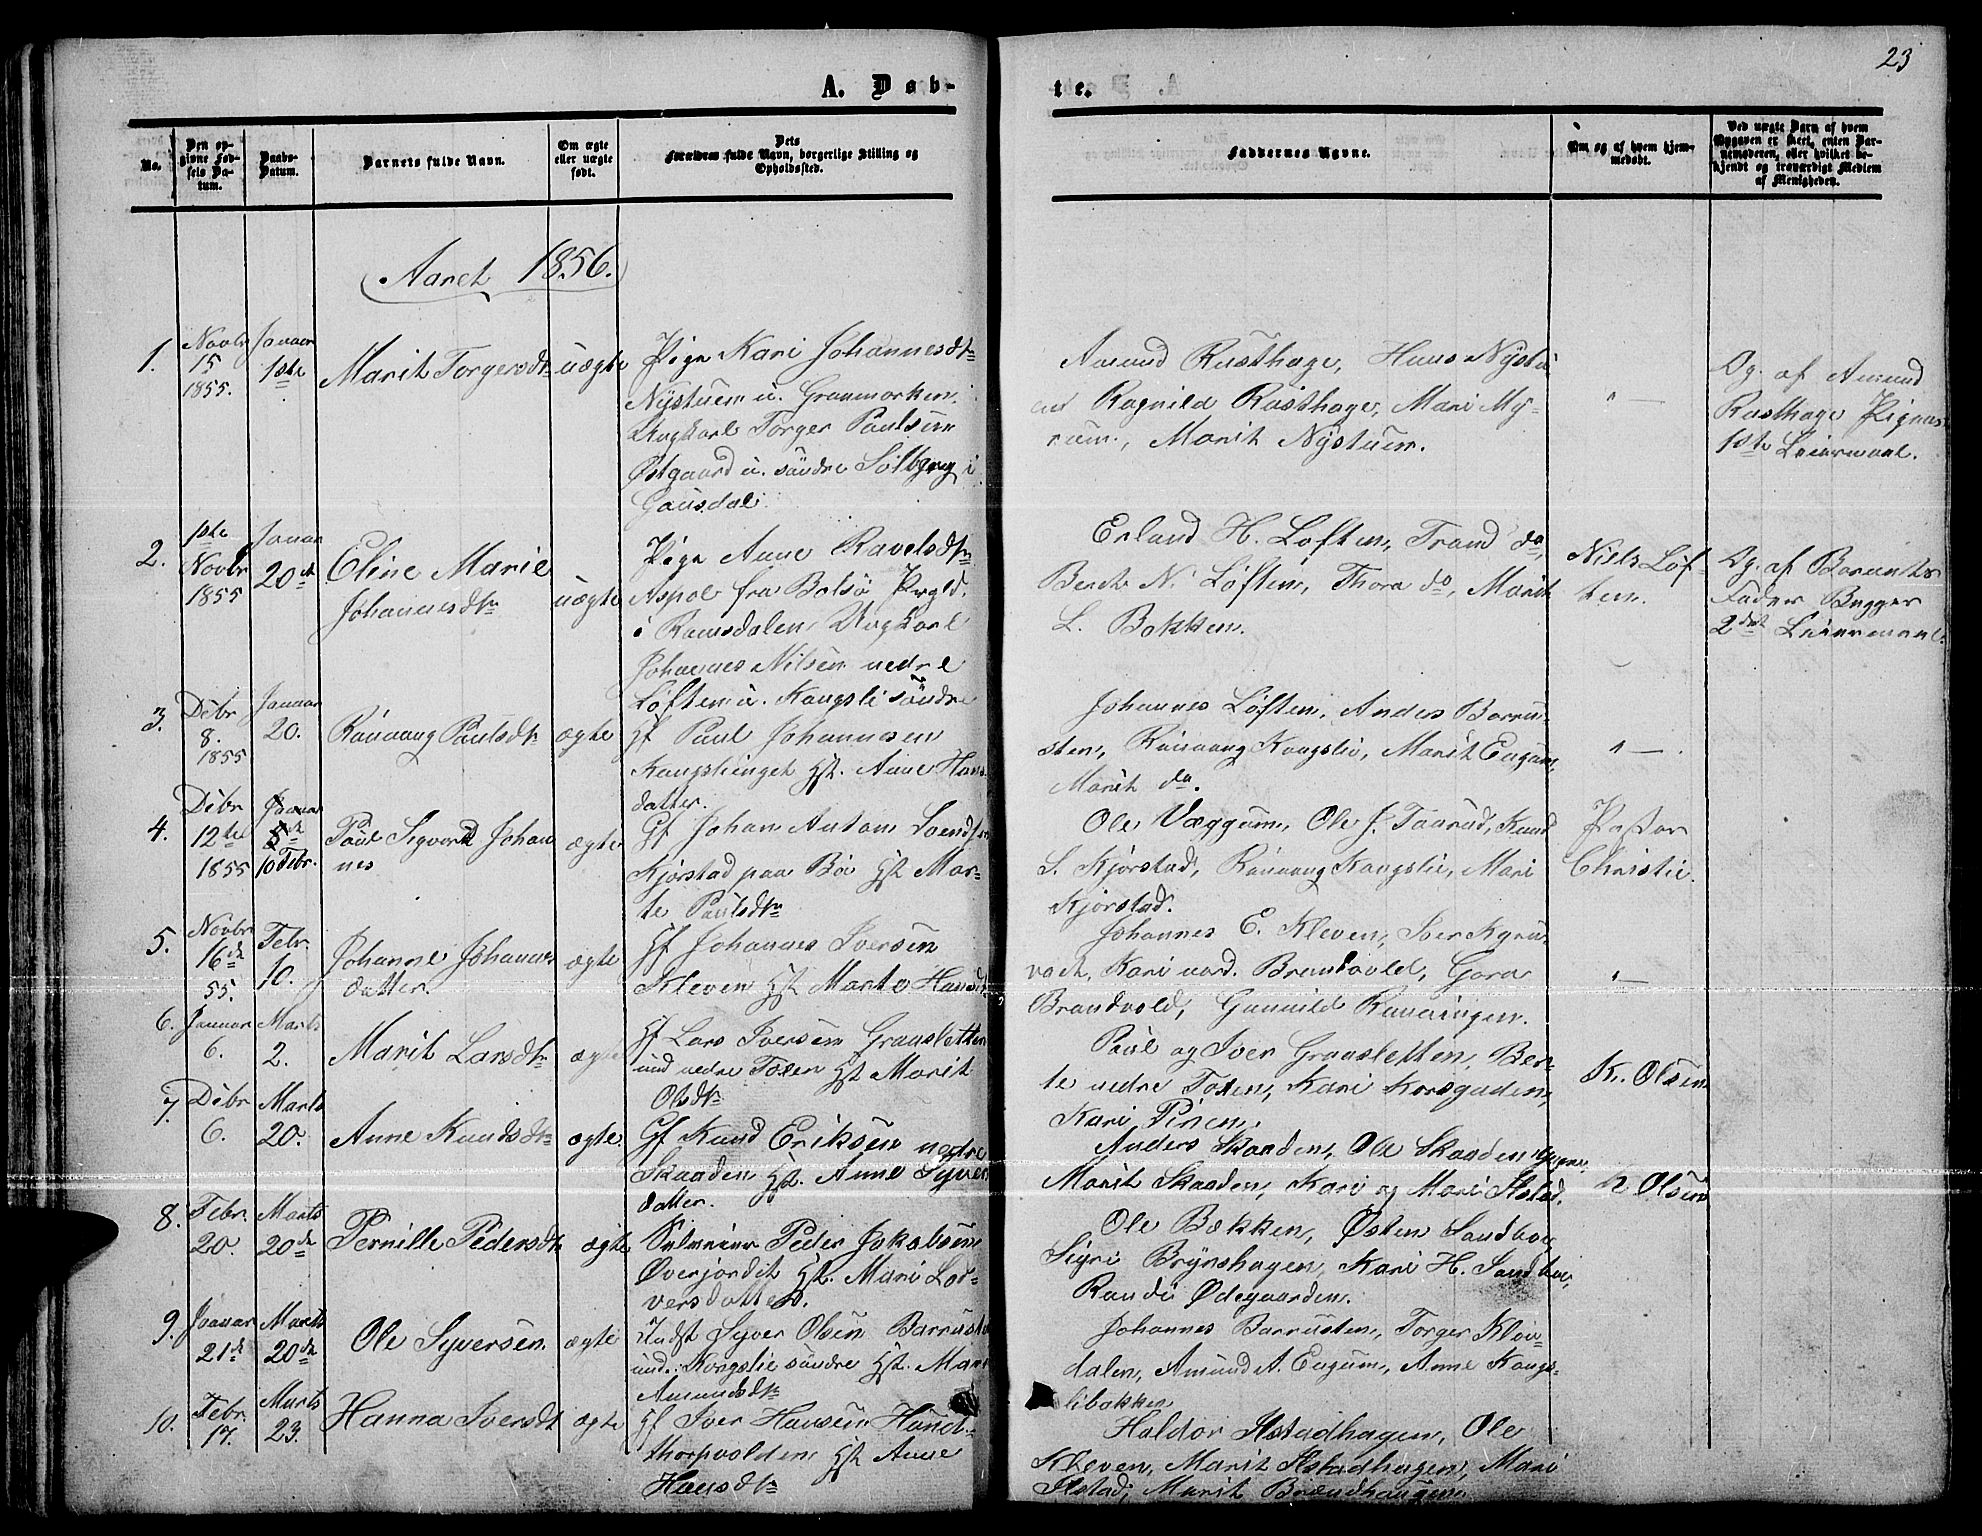 23
A. Døb-
te.
No.
Den op-
givne Fød-
sels Da-
tum.
Daabs-
Datum.
Barnets fulde Navn.
Om ægte
eller uægte
født.
Dets
Forældres fulde Navn, borgerlige Stilling og
Opholdssted.
Faddernes Navne.
Om og af hvem hjem-
medøbt.
Ved uægte Barn af hvem
Opgaven er skeet, enten Bar-
nemoderen, eller hvilket be-
kjendt og troværdigt Medlem
af Menigheden.
Aaret 1856.
1.
Novbr
15
1855.
Januar
1ste
Marit Torgersdtr
uægte
Pige Kari Johannesdtr
Nystuen u. Granmorken.
Ungkarl Torger Paulsen
Østgaard u. søndre Solberg i
Gausdal.
Amund Rusthage, Hans Nystu
en Ragnild Rusthage, Mari My-
rum, Marit Nystuen.
" —
Og. af Amund
Rusthage Pigens
1ste Leiermaal.
2.
1ste
Novbr
1855
Januar
20de
Eline Marie
Johannesdtr
uægte
Pige Anne Ravelsdtr
Aspol fra Bolsø Prgld.
i Romsdalen, Ungkarl
Johannes Nilsen nedre
Løften u. Kongsli søndre
Erland H. Løften, Trond do,
Berit N. Løften, Thora do, Marit
L. Bakken.
Niels Løf-
ten.
Og. af Barnets
Fader Bygger
2det Leiermaal.
3.
Debr
8.
1855
Januar
20.
Rønnaug Paulsdtr
ægte
Hf Paul Johannesen
Kongslienget Hst. Anne Hans
datter.
Johannes Løften, Anders Barru-
sten, Rønnaug Kongslie, Marit Eugum,
Marit do.
" — .
4.
Debr
12te
1855
Januar
5te
10 Febr.
Paul Sigvard Johan
nes
ægte
Gf Johan Anton Svendsen
Kjørstad paa Bø Hst Mar-
te Paulsdtr
Ole Væggum, Ole J. Taarud, Knud
S. Kjørstad, Rønnaug Kongslie, Mari
Kjørstad.
Pastor
Christie.
5.
Novbr
16de
55.
Febr.
10.
Johanne Johannes
datter.
ægte
Hf Johannes Iversen
Kleven Hst Marte Hansdtr
Johannes E. Kleven, Iver Kgru-
vedt, Kari nord. Brandvold, Goro
Brandvold, Gunnild Rønningen.
" —
6.
Januar
6.
Marts
2.
Marit Larsdtr
ægte
Hf Lars Iversen Graasletten
und nedre Toten Hst Marit
Olsdtr
Paul og Iver Graasletten, Ber-
te nedre Toten, Kari Korsgaden,
Kari Tinen.
K. Olsen
7.
Debr
6.
Marts
20.
Anne Knudsdtr
ægte.
Gf Knud Eriksen nedre
Skaaden Hst. Anne Syver
datter.
Anders Skaaden, Ole Skaaden
Marit Skaaden, Kari og Mari Ilstad.
K Olsen
8.
Febr.
20.
Marts
20de
Pernille Pedersdtr
ægte
Selveier Peder Jakobsen
Øverjordet Hst. Mari Lor-
versdatter.
Ole Bækken, Østen Sandboe,
Sigri Brynshagen, Kari H. Sandboe,
Randi Ødegaarden.
9.
Januar
21de
Marts
20de
Ole Syversen.
ægte
Indst Syver Olsen Barrusten
und. Kongslie søndre Hst. Mari
Amundsdtr
Johannes Barrusten, Torger Kløv-
dalen, Amund A. Eugum, Anne Kongs-
libakken
10.
Febr.
17.
Marts
23.
Hanna Iversdtr
ægte
Hf Iver Hansen Hundt-
thorpvolden Hst Anne
Hansdtr
Haldor Ilstadhagen, Ole
Kleven, Marit Ilstadhagen, Mari
Ilstad, Marit Brændhaugen